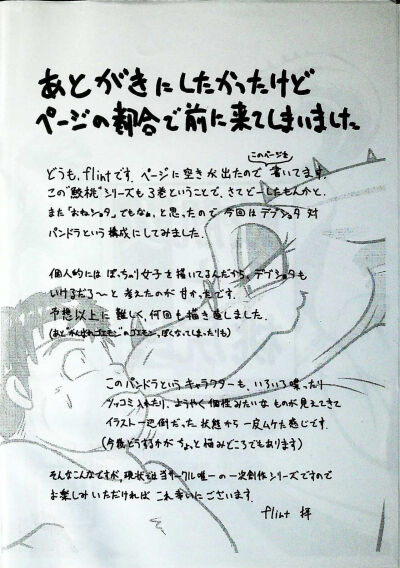 あとがきにしたかったけど
ページの都合で前に来てしまいました
このページを
どうも、flintです。ページに空きが出たので書いてます。
この"鮫桃"シリーズも3巻ということで、さてどーしたもんかと、
また"おねショタ"でもなぁ、と思ったので今回はデブショタ対
パンドラという構成にしてみました。
個人的にはぽっちゃり女子も描いてるんだから、デブショタも
いけるだろ〜と考えたのが甘かったです。
予想以上に難しく、何回も描き直しました。
(あとがんばれゴエモンのゴエモンぽくなってしまったりも)
このパンドラというキャラクターも、いろいろ喋ったり
ツッコミ入れたり、ようやく個性みたいなものが見えてきて
イラスト一辺倒だった状態から一皮ムケた感じです。
(今後どうするかがちょっと悩みどころでもあります)
そんなこんなですが、現状は当サークル唯一の一次創作シリーズですので
お楽しみいただければこれ幸いにございます。
flint 拝